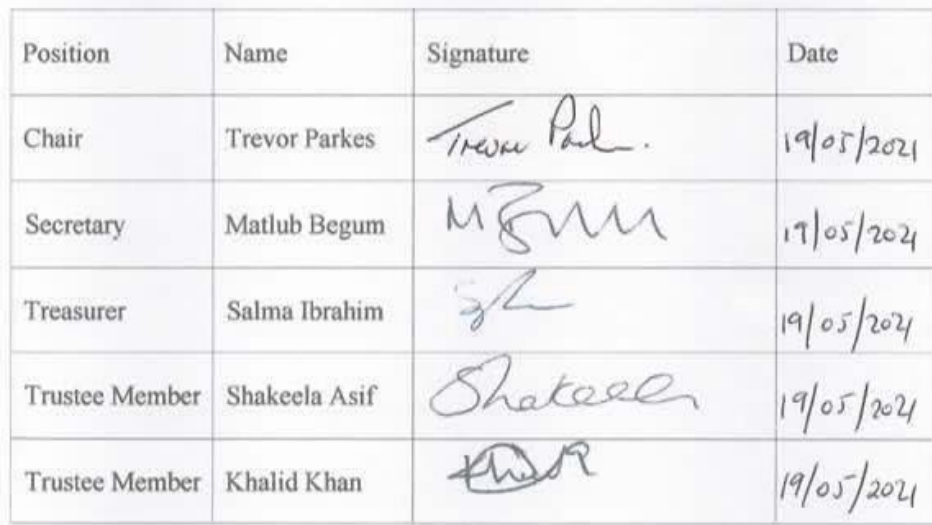 Position Name Signature Date
Chair Trevor Parkes Trevor Park. 19/05/2021
Secretary Matlub Begum M Begum 19/05/2021
Treasurer Salma Ibrahim 19/05/2021
Trustee Member Shakeela Asif Shakeela 19/05/2021
Trustee Member Khalid Khan 19/05/2021